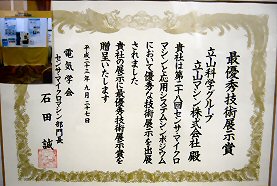 最優秀技術展示賞
立山科学グループ
立山マシン株式会社 殿
貴社は第二十八回センサ・マイクロ
マシンと応用システムシンポジウム
において優秀な技術展示を出展
されました
貴社の展示に最優秀技術展示賞を
贈呈いたします
平成二十三年九月二十七日
電気学会
センサ・マイクロマシン部門長
石田 誠